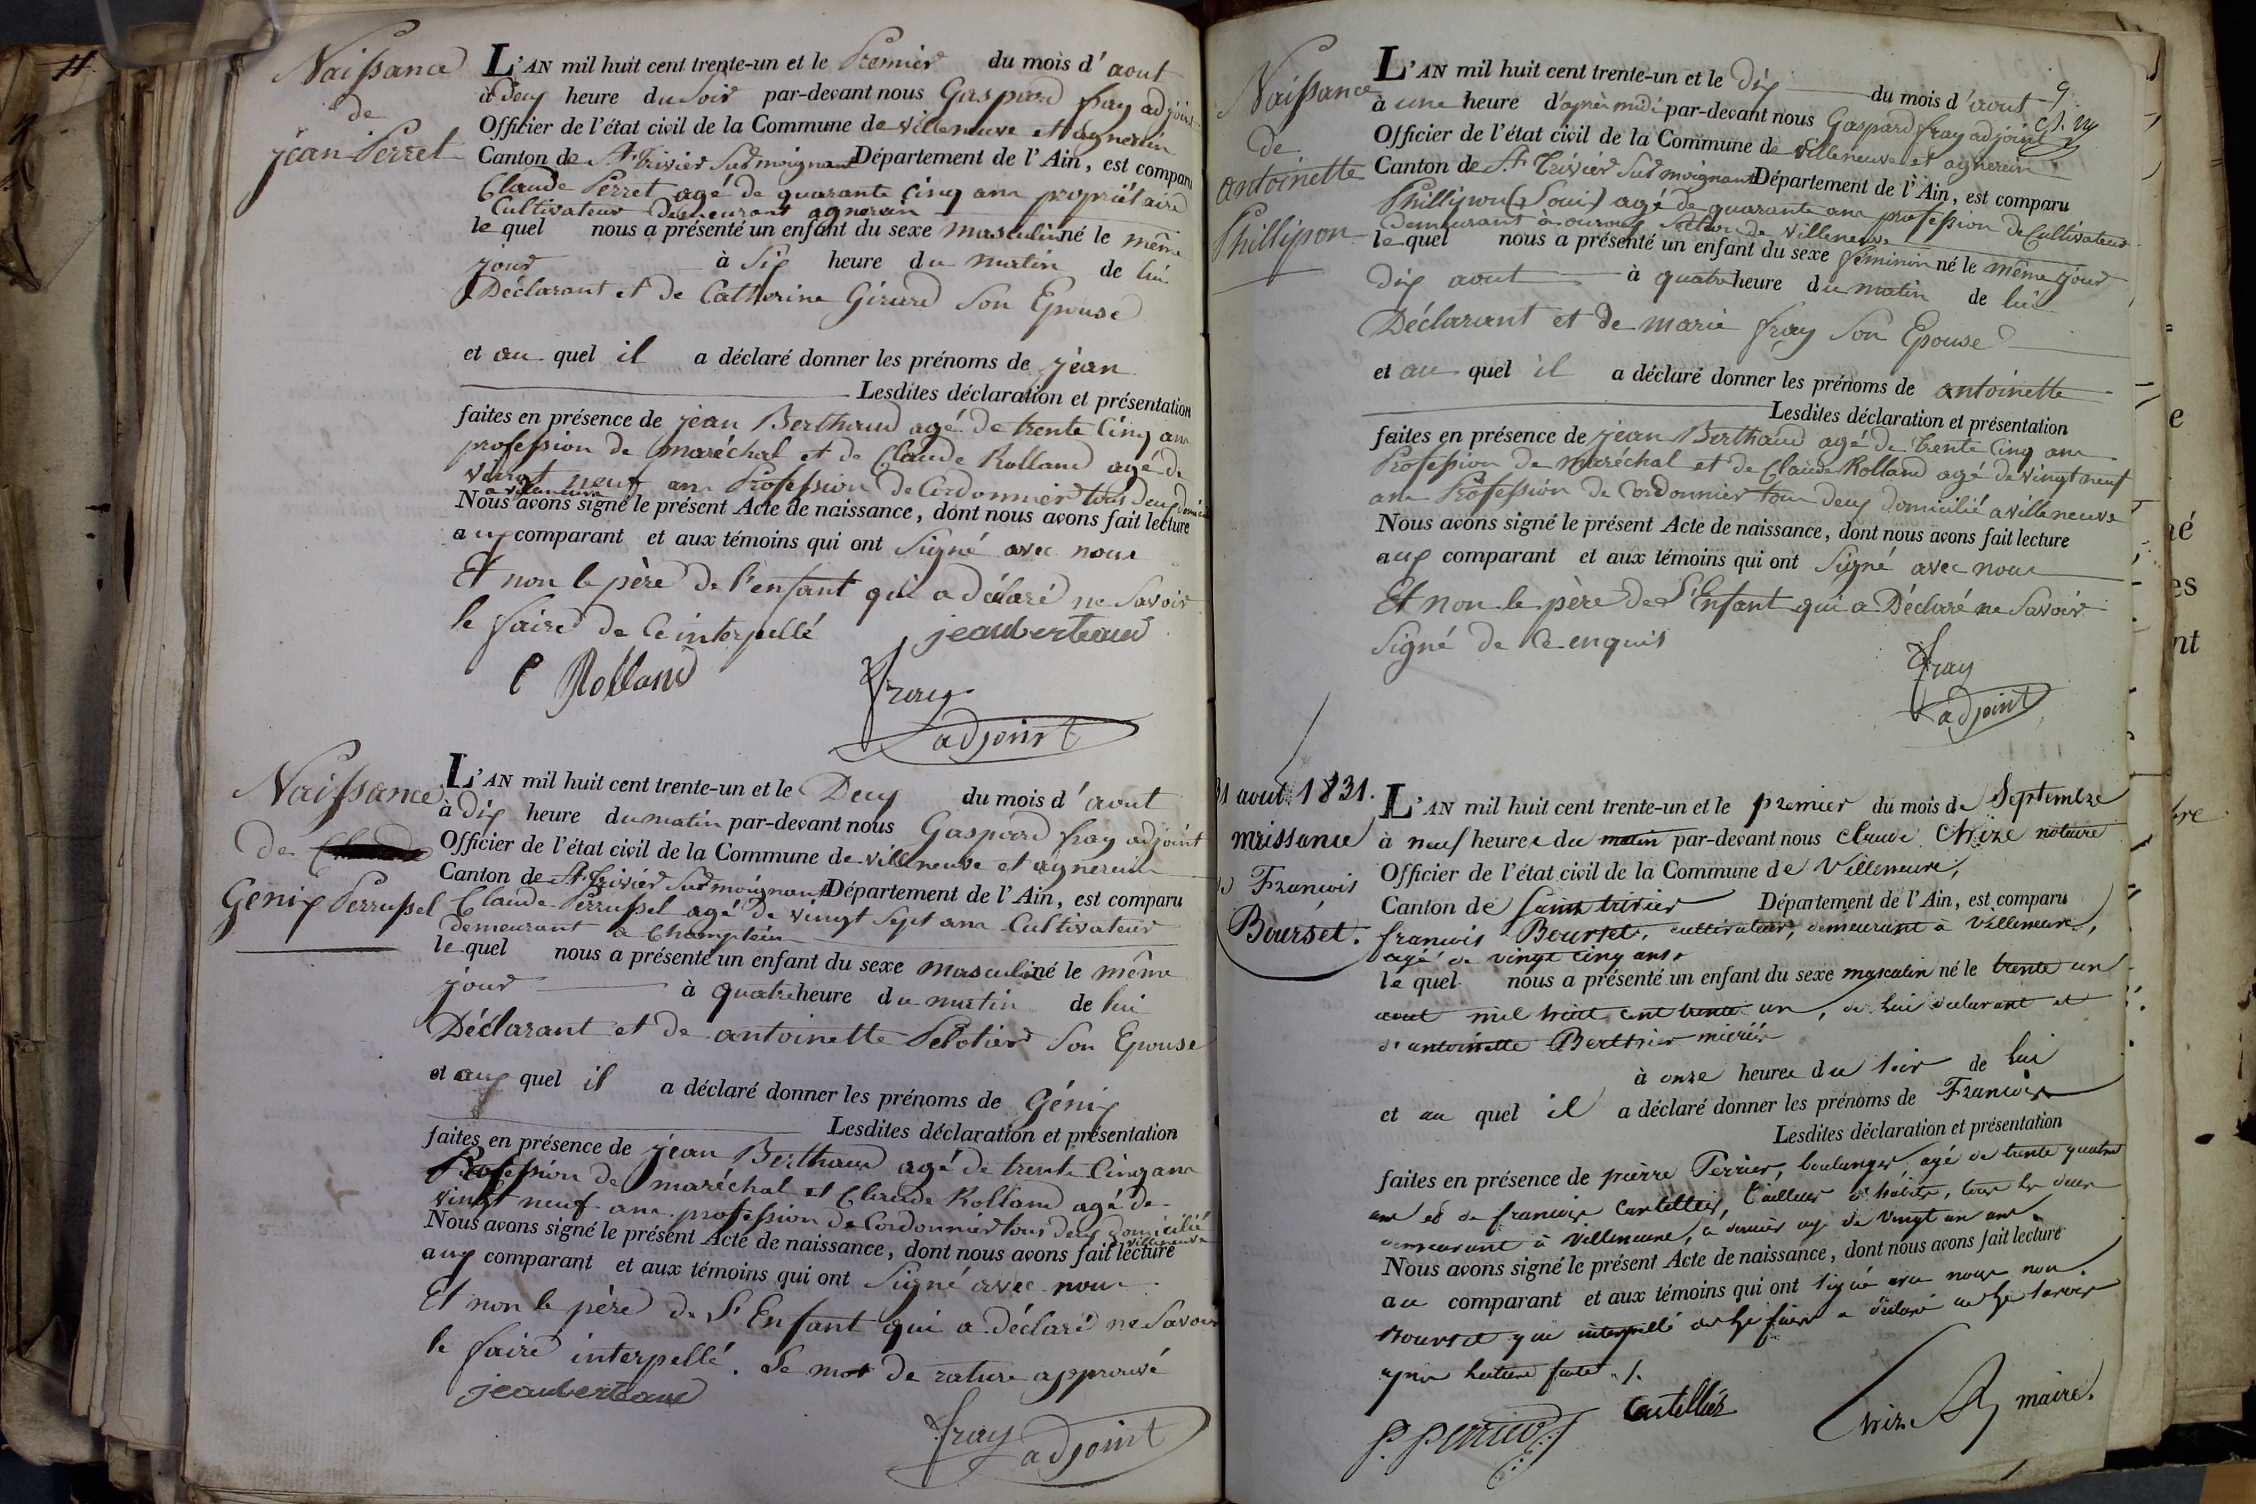 11
Naissance
de
jean Perret
L'AN mil huit cent trente-un et le Premier du mois d'aout
à deux heure du soir par-devant nous Gaspard fray adjoint
Officier de l'état civil de la Commune de villeneuve et agnerein
Canton de St Trivier sur moignant Département de l'Ain, est comparu
Claude Perret agé de quarante cinq ans propriétaire
Cultivateur demeurant agnerein
le quel nous a présenté un enfant du sexe masculin né le même
jour à Six heure du matin de lui
Déclarant et de Catherine Girard Son Epouse
et au quel il a déclaré donner les prénoms de jean
Lesdites déclaration et présentation
faites en présence de jean Berthaud agé de trente Cinq ans
profession de maréchal et de Claude Rolland agé de
vingt neuf ans Profession de Cordonnier tous deux domicilié
a villeneuve
Nous avons signé le présent Acte de naissance, dont nous avons fait lecture
aux comparant et aux témoins qui ont Signé avec nous
Et non le père de l'enfant qui a déclaré ne Savoir
le faire de Ce interpellé
jeanberteaud
C Rolland
fray
adjoint
Naissance
de
Genix Perrussel
L'AN mil huit cent trente-un et le Deux du mois d'aout
à dix heure du matin par-devant nous Gaspard fray adjoint
Officier de l'état civil de la Commune de villeneuve et agnerein
Canton de St Trivier sur moignant Département de l'Ain, est comparu
Claude Perrussel agé de vingt Sept ans Cultivateur
demeurant a Champtein
le quel nous a présenté un enfant du sexe masculin né le même
jour à quatre heure du matin de lui
Déclarant et de antoinette Pelotier Son Epouse
et aux quel il a déclaré donner les prénoms de Génix
Lesdites déclaration et présentation
faites en présence de jean Berthaud agé de trente Cinq ans
Profession de maréchal et Claude Rolland agé de
vingt neuf ans profession de Cordonnier tous deux domicilié
a villeneuve
Nous avons signé le présent Acte de naissance, dont nous avons fait lecture
aux comparant et aux témoins qui ont Signé avec nous
Et non le père de L'Enfant qui a déclaré ne Savoir
le faire interpellé. Le mot de rature approuvé
jeanberteaud
fray
adjoint
Naissance
de
antoinette
Phillipon
L'AN mil huit cent trente-un et le dix du mois d'aout
9
à une heure d'après midi par-devant nous Gaspard fray adjoint
Officier de l'état civil de la Commune de villeneuve et agnerein
Canton de St Trivier sur moignant Département de l'Ain, est comparu
Phillipon (Louis) agé de quarante ans profession de Cultivateur
demeurant à ournex Section de villeneuve
le quel nous a présenté un enfant du sexe féminin né le même jour
dix aout à quatre heure du matin de lui
Déclarant et de marie fray Son Epouse
et au quel il a déclaré donner les prénoms de antoinette
Lesdites déclaration et présentation
faites en présence de jean Berthaud agé de trente Cinq ans
Profession de maréchal et de Claude Rolland agé de vingt neuf
ans Profession de Cordonnier tous deux domicilié a villeneuve
Nous avons signé le présent Acte de naissance, dont nous avons fait lecture
aux comparant et aux témoins qui ont Signé avec nous
Et non le père de L'Enfant qui a Déclaré ne Savoir
Signé de Ce enquis
fray
adjoint
31 aout 1831.
naissance
François
Bourset.
L'AN mil huit cent trente-un et le premier du mois de Septembre
à neuf heures du matin par-devant nous claude notaire
Officier de l'état civil de la Commune de Villeneuve,
Canton de Saint trivier Département de l'Ain, est comparu
francois Bourset, cultivateur, demeurant à Villeneuve,
agé de vingt cinq ans
le quel nous a présenté un enfant du sexe masculin né le trente un
aout mil huit cent trente un, de lui declarant et
d'antoinette Berthier mariés
à onze heures du soir de lui
et au quel il a déclaré donner les prénoms de Francois
Lesdites déclaration et présentation
faites en présence de pierre Perrier, boulanger, agé de trente quatre
ans et de francois Castellier, tailleur d'habits, tous les deux
demeurant à Villeneuve, ce dernier agé de Vingt un ans
Nous avons signé le présent Acte de naissance, dont nous avons fait lecture
au comparant et aux témoins qui ont signé avec nous non
Bourset qui interpellé de le faire a déclaré ne le savoir
après lecture faite ./.
P. Perrier
Castellier
maire.